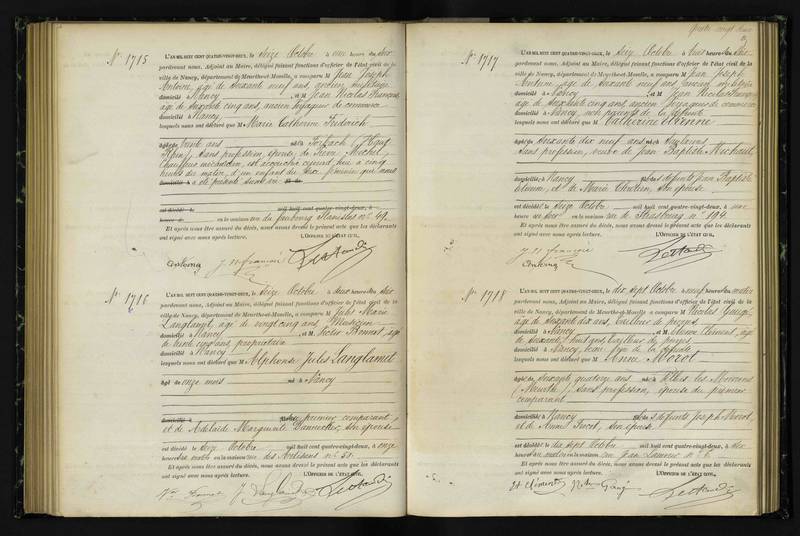 Quatre vingt deux
N° 1715
L'AN MIL HUIT CENT QUATRE-VINGT-DEUX, le seize Octobre à une heure du soir
pardevant nous, Adjoint au Maire, délégué faisant fonctions d'officier de l'état civil de la
ville de Nancy, département de Meurthe-et-Moselle, a comparu M Jean Joseph
Antoine, âgé de soixante neuf ans, ancien
domicilié à Nancy, et M Jean Nicolas François
âgé de soixante cinq ans, ancien voyageur de commerce
domicilié à Nancy,
lesquels nous ont déclaré que M Marie Catherine
âgée de trente ans née à Forbach
sans profession, épouse de Pierre Michel
chauffeur mécanicien, est accouchée aujourd'hui à cinq
heures du matin, d'un enfant du sexe féminin
domicilié à a été présenté sans vie
est décédé le mil huit cent quatre-vingt-deux, à
heure d en la maison rue du faubourg Stanislas n° 49.
Et après nous être assuré du décès, nous avons dressé le présent acte que les déclarants
ont signé avec nous après lecture. L'OFFICIER DE L'ÉTAT CIVIL,
N° 1716
L'AN MIL HUIT CENT QUATRE-VINGT-DEUX, le seize Octobre à deux heures du soir
pardevant nous, Adjoint au Maire, délégué faisant fonctions d'officier de l'état civil de la
ville de Nancy, département de Meurthe-et-Moselle, a comparu M Jules Marie
Langlamet, âgé de vingt cinq ans, Musicien
domicilié à Nancy, et M Victor Bonnet, âgé
de trente cinq ans, propriétaire
domicilié à Nancy
lesquels nous ont déclaré que M Alphonse Jules Langlamet
âgé de onze mois né à Nancy
domicilié à fils du premier comparant,
et de Adélaïde Marguerite, son épouse
est décédé le seize Octobre mil huit cent quatre-vingt-deux, à onze
heures du matin en la maison rue des Artisans n° 50.
Et après nous être assuré du décès, nous avons dressé le présent acte que les déclarants
ont signé avec nous après lecture. L'OFFICIER DE L'ÉTAT CIVIL,
N° 1717
L'AN MIL HUIT CENT QUATRE-VINGT-DEUX, le seize Octobre à trois heures du soir
pardevant nous, Adjoint au Maire, délégué faisant fonctions d'officier de l'état civil de la
ville de Nancy, département de Meurthe-et-Moselle, a comparu M Jean Joseph
Antoine, âgé de soixante neuf ans, ancien
domicilié à Nancy, et M Jean Nicolas François
âgé de soixante cinq ans, ancien voyageur de commerce
domicilié à Nancy, non parents de la défunte
lesquels nous ont déclaré que M Catherine Etienne
âgée de soixante dix ans née à
sans profession, veuve de Jean Baptiste Michaut,
domiciliée à Nancy fille des défunts Jean Baptiste
Etienne, et de Marie, son épouse
est décédée le seize Octobre mil huit cent quatre-vingt-deux, à une
heure du soir en la maison rue de Strasbourg n° 194.
Et après nous être assuré du décès, nous avons dressé le présent acte que les déclarants
ont signé avec nous après lecture. L'OFFICIER DE L'ÉTAT CIVIL,
N° 1718
L'AN MIL HUIT CENT QUATRE-VINGT-DEUX, le dix sept Octobre à neuf heures du matin
pardevant nous, Adjoint au Maire, délégué faisant fonctions d'officier de l'état civil de la
ville de Nancy, département de Meurthe-et-Moselle, a comparu M Nicolas
âgé de soixante dix ans, tailleur de pierres
domicilié à Nancy, et M Clément, âgé
de soixante huit ans, tailleur de pierres
domicilié à Nancy, de la défunte
lesquels nous ont déclaré que M Anne Morot
âgée de soixante quatorze ans née à
(Meurthe), sans profession, épouse du premier
comparant
domiciliée à Nancy fille des défunts Joseph Morot,
et de Anne, son épouse
est décédée le dix sept Octobre mil huit cent quatre-vingt-deux, à
heure du matin en la maison rue Jean Lamour n° 6
Et après nous être assuré du décès, nous avons dressé le présent acte que les déclarants
ont signé avec nous après lecture. L'OFFICIER DE L'ÉTAT CIVIL,